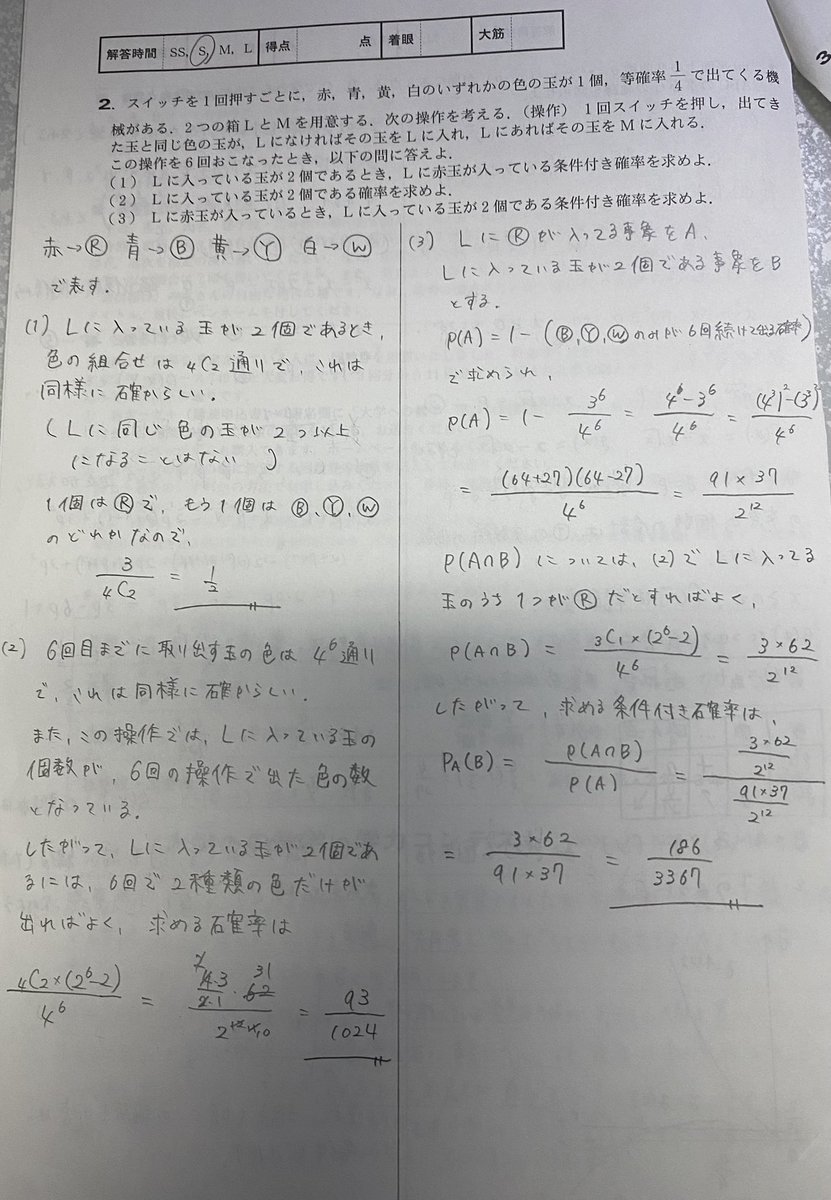 解答時間 SS, S, M, L 得点 点 着眼 大筋
3
2. スイッチを1回押すごとに，赤，青，黄，白のいずれかの色の玉が1個，等確率1/4で出てくる機
械がある．2つの箱LとMを用意する．次の操作を考える．（操作） 1回スイッチを押し，出てき
た玉と同じ色の玉が，Lになければその玉をLに入れ，Lにあればその玉をMに入れる．
この操作を6回おこなったとき，以下の問に答えよ．
（1） Lに入っている玉が2個であるとき，Lに赤玉が入っている条件付き確率を求めよ．
（2） Lに入っている玉が2個である確率を求めよ．
（3） Lに赤玉が入っているとき，Lに入っている玉が2個である条件付き確率を求めよ．
赤→Ⓡ 青→Ⓑ 黄→Ⓨ 白→Ⓦ
で表す.
(1) Lに入っている玉が2個であるとき,
色の組合せは 4C2 通りで, これは
同様に確からしい.
(Lに同じ色の玉が2つ以上
になることはない)
1個はⓇで, もう1個はⒷ, Ⓨ, Ⓦ
のどれかなので,
3/4C2 = 1/2
(2) 6回目までに取り出す玉の色は 4^6 通り
で, これは同様に確からしい.
また, この操作では, Lに入っている玉の
個数が, 6回の操作で出た色の数
となっている.
したがって, Lに入っている玉が2個であ
るには, 6回で2種類の色だけが
出ればよく, 求める確率は
4C2×(2^6-2)/4^6 = (4·3/2·1 · 62)/2^12 = 93/1024
(3) LにⓇが入ってる事象をA,
Lに入っている玉が2個である事象をB
とする.
P(A) = 1 - (Ⓑ, Ⓨ, Ⓦのみが6回続けて出る確率)
で求められ,
P(A) = 1 - 3^6/4^6 = (4^6-3^6)/4^6 = ((4^3)^2-(3^3)^2)/4^6
= (64+27)(64-27)/4^6 = 91×37/2^12
P(A∩B) については, (2)でLに入ってる
玉のうち1つがⓇだとすればよく,
P(A∩B) = 3C1×(2^6-2)/4^6 = 3×62/2^12
したがって, 求める条件付き確率は,
PA(B) = P(A∩B)/P(A) = (3×62/2^12)/(91×37/2^12)
= 3×62/91×37 = 186/3367